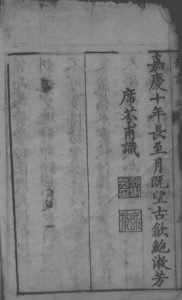 嘉慶十年長至月既望古歙鮑漱芳
席芬甫識